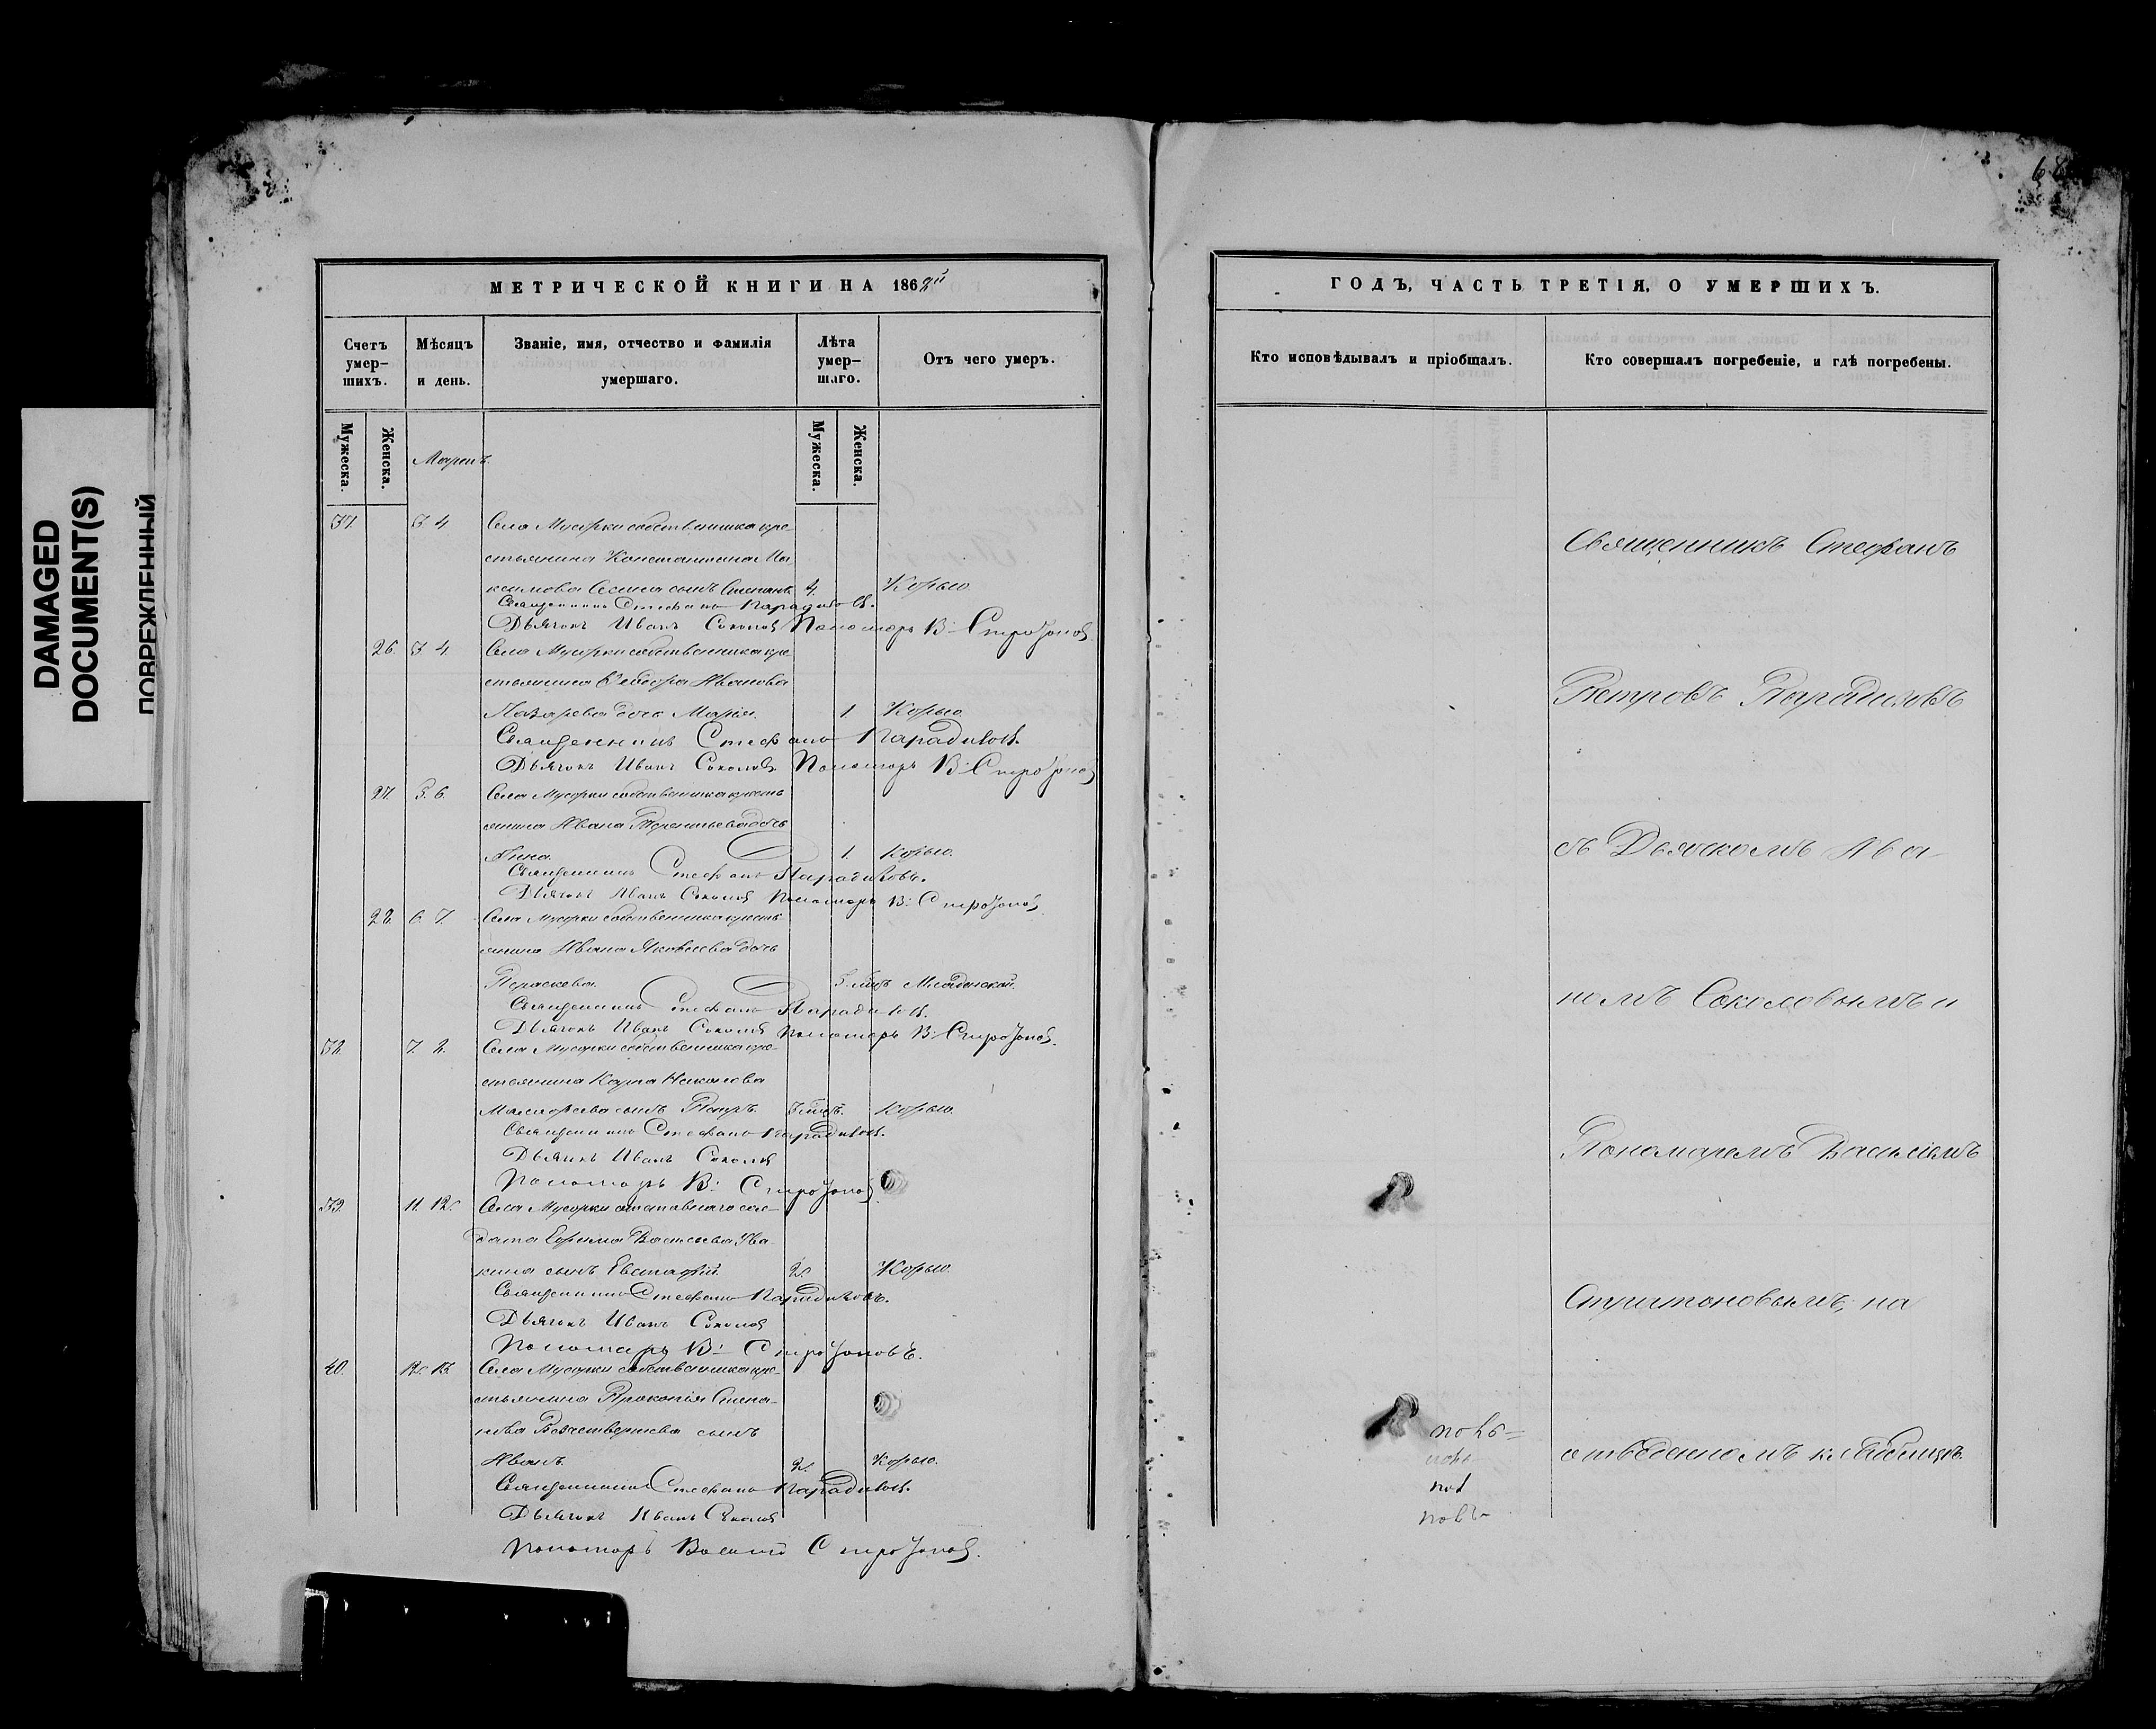 DAMAGED
DOCUMENT(S)
ПОВРЕЖДЕННЫЙ
МЕТРИЧЕСКОЙ КНИГИ НА 1868й
Счетъ умер-шихъ.
Мѣсяцъ и день.
Званіе, имя, отчество и фамилія умершаго.
Лѣта умер-шаго.
Отъ чего умеръ.
Мужеска.
Женска.
Мартъ.
Мужеска.
Женска.
37. 3. 4. Села Мусорки собственника кре-
стьянина Константина Ма
ксимова сынъ Степанъ 4. Корью.
Священникъ Стефанъ Парадизовъ.
Дьячокъ Иванъ Соколовъ Пономарь В: Стратоновъ
26. 3. 4. Села Мусорки собственника кре
стьянина Ѳеодора Иванова
Лазарева дочь Марія. 1 Корью
Священникъ Стефанъ Парадизовъ.
Дьячокъ Иванъ Соколовъ. Пономарь В: Стратоновъ
27. 5. 6. Села Мусорки собственника кресть
янина Ивана Терентьева дочь
Анна. 1. Корью.
Священникъ Стефанъ Парадизовъ.
Дьячокъ Иванъ Соколовъ Пономарь В: Стратоновъ
28. 6. 7. Села Мусорки собственника кресть
янина Ивана Яковлева дочь
Параскева. Младенской.
Священникъ Стефанъ Парадизовъ.
Дьячокъ Иванъ Соколовъ Пономарь В: Стратоновъ.
38. Села Мусорки собственника кре-
стьянина Карпа
сынъ Петръ. Корью.
Священникъ Стефанъ Парадизовъ.
Дьячокъ Иванъ Соколовъ
Пономарь В: Стратоновъ.
39. 11. 12. Села Мусорки отставнаго сол-
дата Ефима Васильева
сынъ Евстафій. 2. Корью.
Священникъ Стефанъ Парадизовъ.
Дьячокъ Иванъ Соколовъ
Пономарь В: Стратоновъ.
40. 12. 13. Села Мусорки собственника кре-
стьянина Прокопія Степа-
нова сынъ
Иванъ. 2. Корью.
Священникъ Стефанъ Парадизовъ.
Дьячокъ Иванъ Соколовъ
Пономарь Василій Стратоновъ.
ГОДЪ, ЧАСТЬ ТРЕТІЯ, О УМЕРШИХЪ.
Кто исповѣдывалъ и пріобщалъ.
Кто совершалъ погребеніе, и гдѣ погребены.
Священникъ Стефанъ
Петровъ Парадизовъ
съ Дьячкомъ Ива-
номъ Соколовымъ и
Пономаремъ Василіемъ
Стратоновымъ, на
отведенномъ кладбищѣ.